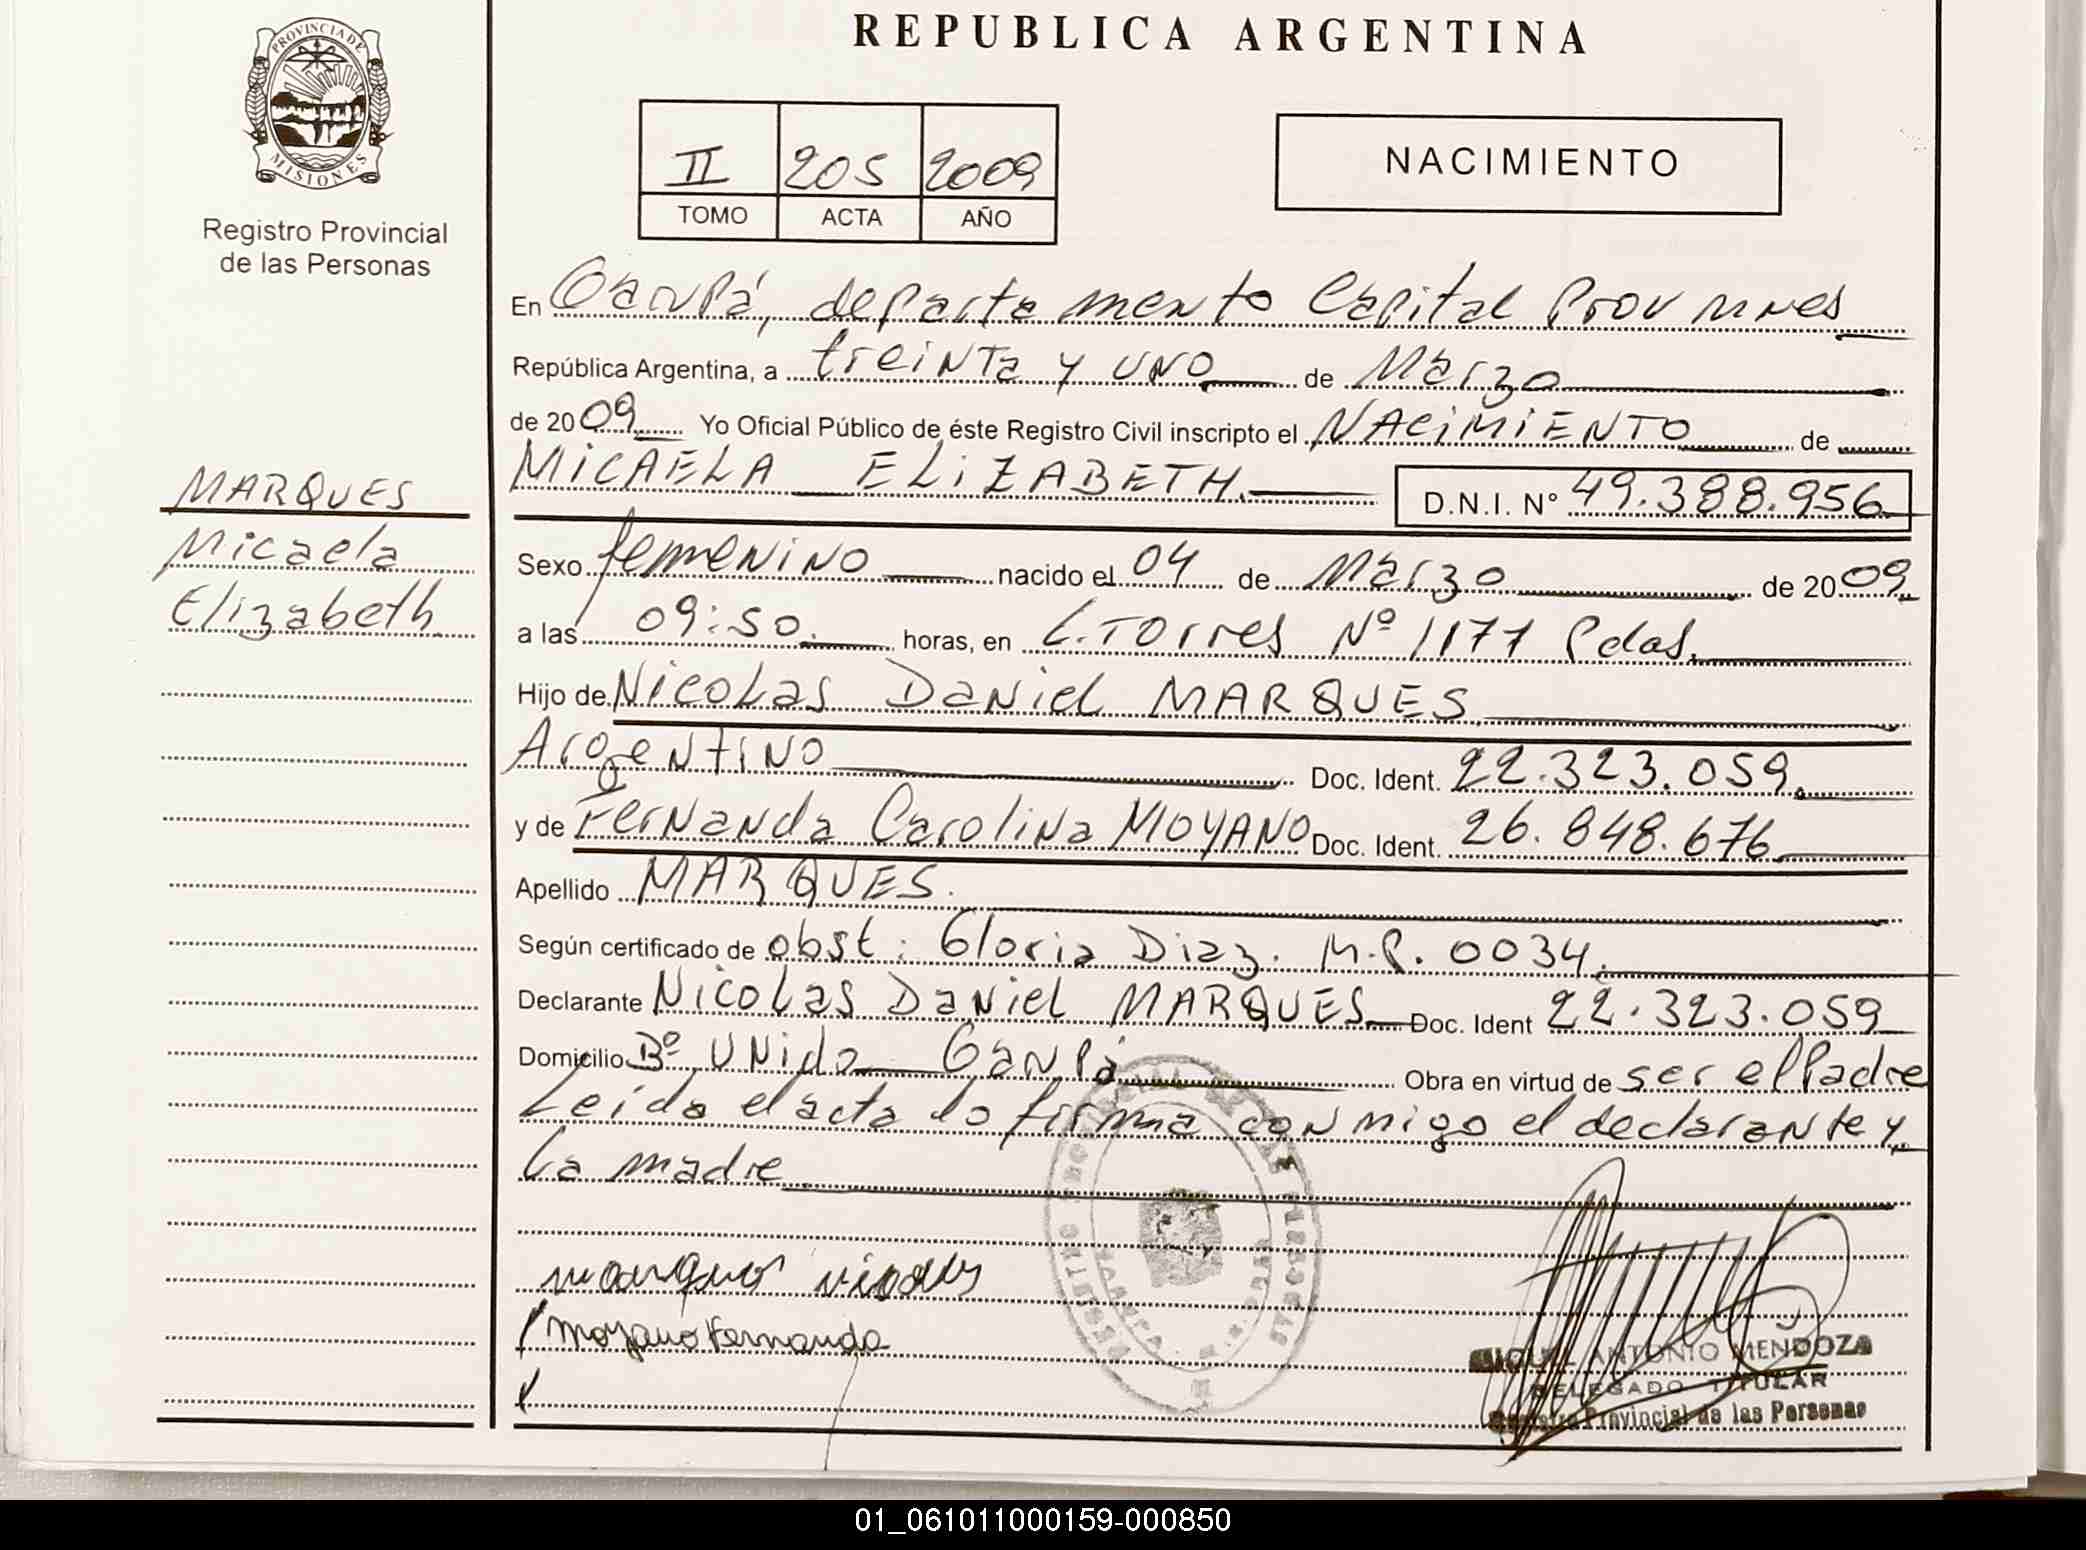 REPUBLICA ARGENTINA
PROVINCIA DE
MISIONES
Registro Provincial
de las Personas
II 205 2009
TOMO ACTA AÑO
NACIMIENTO
En Garupá, departamento Capital Prov Mnes
República Argentina, a treinta y uno de Marzo
de 2009 Yo Oficial Público de éste Registro Civil inscripto el NACIMIENTO de
MICAELA ELIZABETH. D.N.I. Nº 49.388.956
MARQUES
Micaela
Elizabeth
Sexo femenino nacido el 04 de Marzo de 2009
a las 09:50. horas, en L. Torres Nº 1177 Pdas.
Hijo de Nicolas Daniel MARQUES
Argentino Doc. Ident. 22.323.059.
y de Fernanda Carolina MOYANO Doc. Ident. 26.848.676
Apellido MARQUES.
Según certificado de obst: Gloria Diaz. M.P. 0034.
Declarante Nicolas Daniel MARQUES Doc. Ident 22.323.059
Domicilio Bº Unido Garupá Obra en virtud de ser el Padre
Leída el acta lo firma conmigo el declarante y
la madre
marques nicolas
Moyano Fernanda
MIGUEL ANTONIO MENDOZA
DELEGADO TITULAR
Registro Provincial de las Personas
01_061011000159-000850